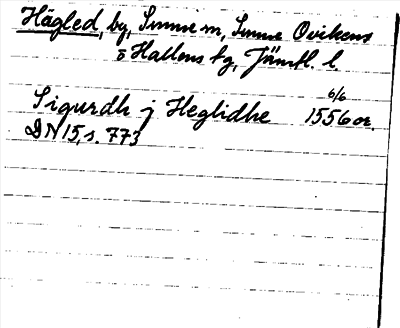 Hägled, by, Sunne sn, Sunne Ovikens
o Hallens tg, Jämtl. l.
6/6
Sigurdh j Heglidhe 1556 or.
DN 15, s. 773